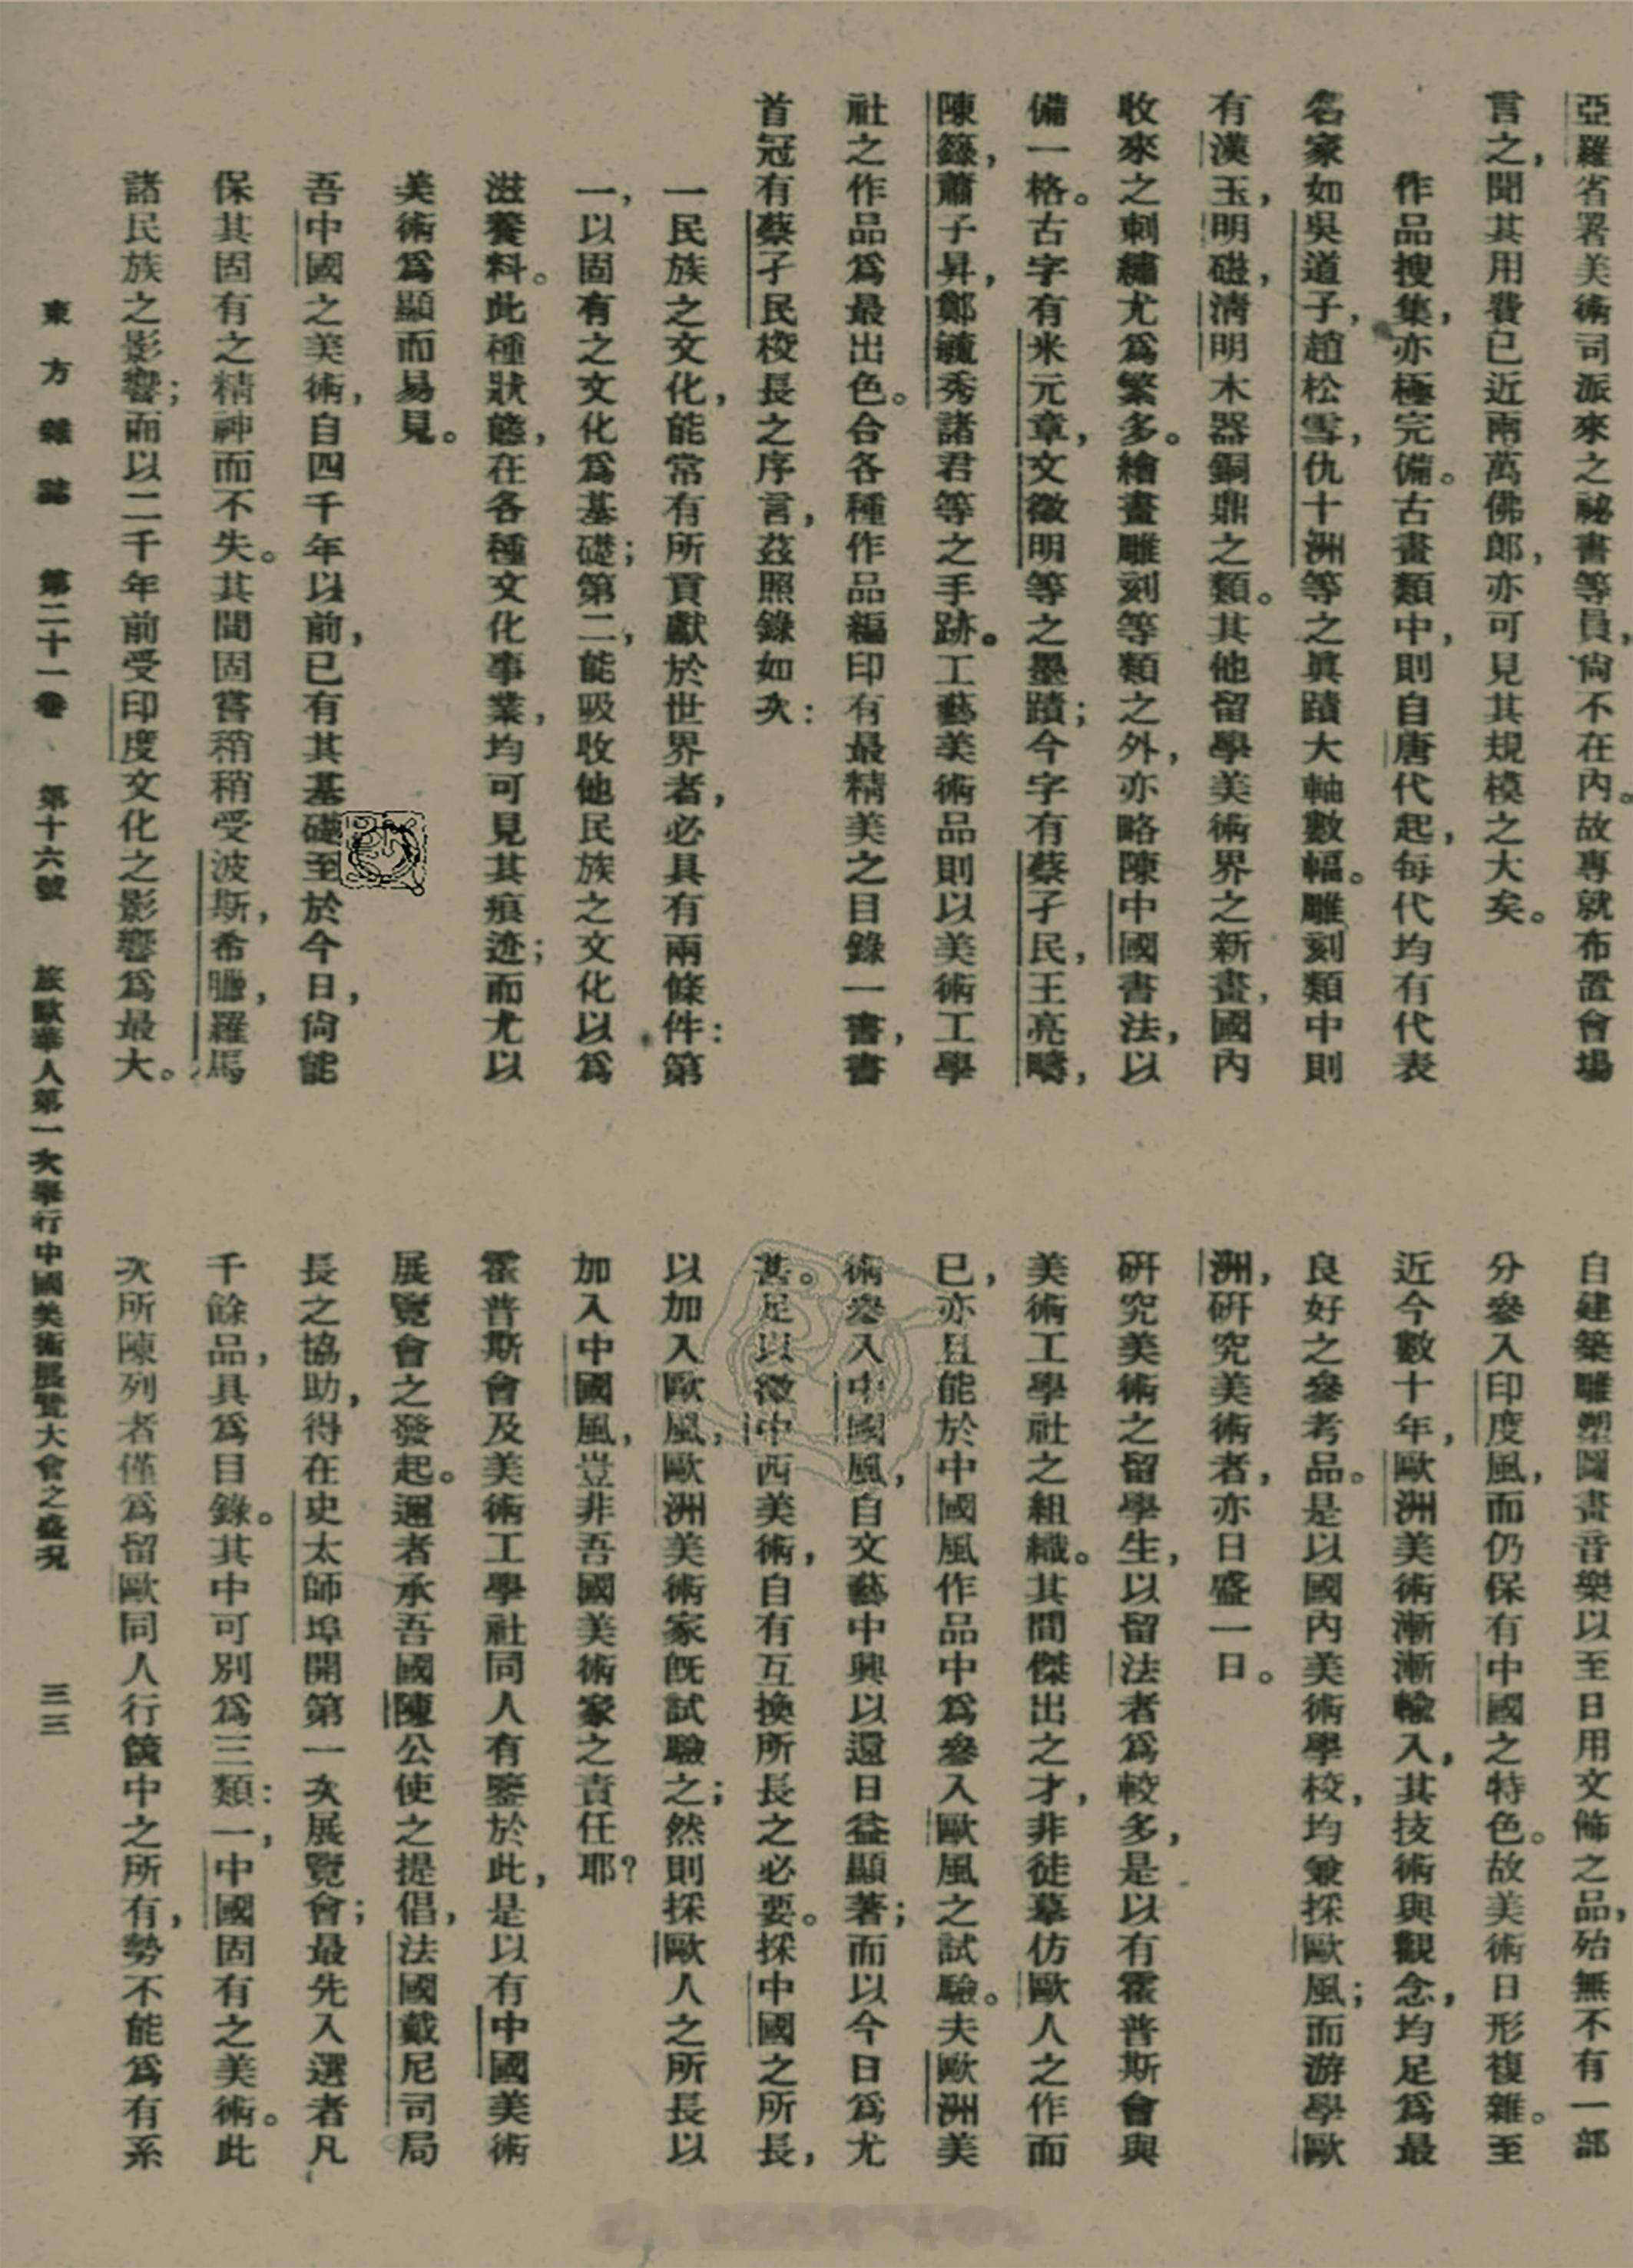 亞羅省署美術司派來之祕書等員，尙不在內。故專就布置會場
言之，聞其用費已近兩萬佛郎，亦可見其規模之大矣。
作品搜集，亦極完備。古畫類中，則自唐代起，每代均有代表
名家如吳道子，趙松雪，仇十洲等之眞蹟大軸數幅。雕刻類中則
有漢玉，明磁，淸明木器銅鼎之類。其他留學美術界之新畫，國內
收來之刺繡尤爲繁多。繪畫雕刻等類之外，亦略陳中國書法，以
備一格。古字有米元章，文徵明等之墨蹟；今字有蔡孑民，王亮疇，
陳籙，蕭子昇，鄭毓秀諸君等之手跡。工藝美術品則以美術工學
社之作品爲最出色。合各種作品編印有最精美之目錄一書，書
首冠有蔡孑民校長之序言，茲照錄如次：
一民族之文化，能常有所貢獻於世界者，必具有兩條件：第
一，以固有之文化爲基礎；第二，能吸收他民族之文化以爲
滋養料。此種狀態，在各種文化事業，均可見其痕迹；而尤以
美術爲顯而易見。
吾中國之美術，自四千年以前，已有其基礎至於今日，尙能
保其固有之精神而不失。其間固嘗稍稍受波斯，希臘，羅馬
諸民族之影響；而以二千年前受印度文化之影響爲最大。
自建築雕塑圖畫音樂以至日用文佈之品，殆無不有一部
分參入印度風，而仍保有中國之特色。故美術日形複雜。至
近今數十年，歐洲美術漸漸輸入，其技術與觀念，均足爲最
良好之參考品。是以國內美術學校，均兼採歐風；而游學歐
洲，研究美術者，亦日盛一日。
研究美術之留學生，以留法者爲較多，是以有霍普斯會與
美術工學社之組織。其間傑出之才，非徒摹仿歐人之作而
已，亦且能於中國風作品中爲參入歐風之試驗。夫歐洲美
術參入中國風，自文藝中興以還日益顯著；而以今日爲尤
甚。足以徵中西美術，自有互換所長之必要。採中國之所長，
以加入歐風，歐洲美術家旣試驗之；然則採歐人之所長以
加入中國風，豈非吾國美術家之責任耶？
霍普斯會及美術工學社同人有鑒於此，是以有中國美術
展覽會之發起。邇者承吾國陳公使之提倡，法國戴尼司局
長之協助，得在史太師埠開第一次展覽會；最先入選者凡
千餘品，具爲目錄。其中可別爲三類：一，中國固有之美術。此
次所陳列者僅爲留歐同人行篋中之所有，勢不能爲有系
東方雜誌　第二十一卷　第十六號　旅歐華人第一次舉行中國美術展覽大會之盛況　三三